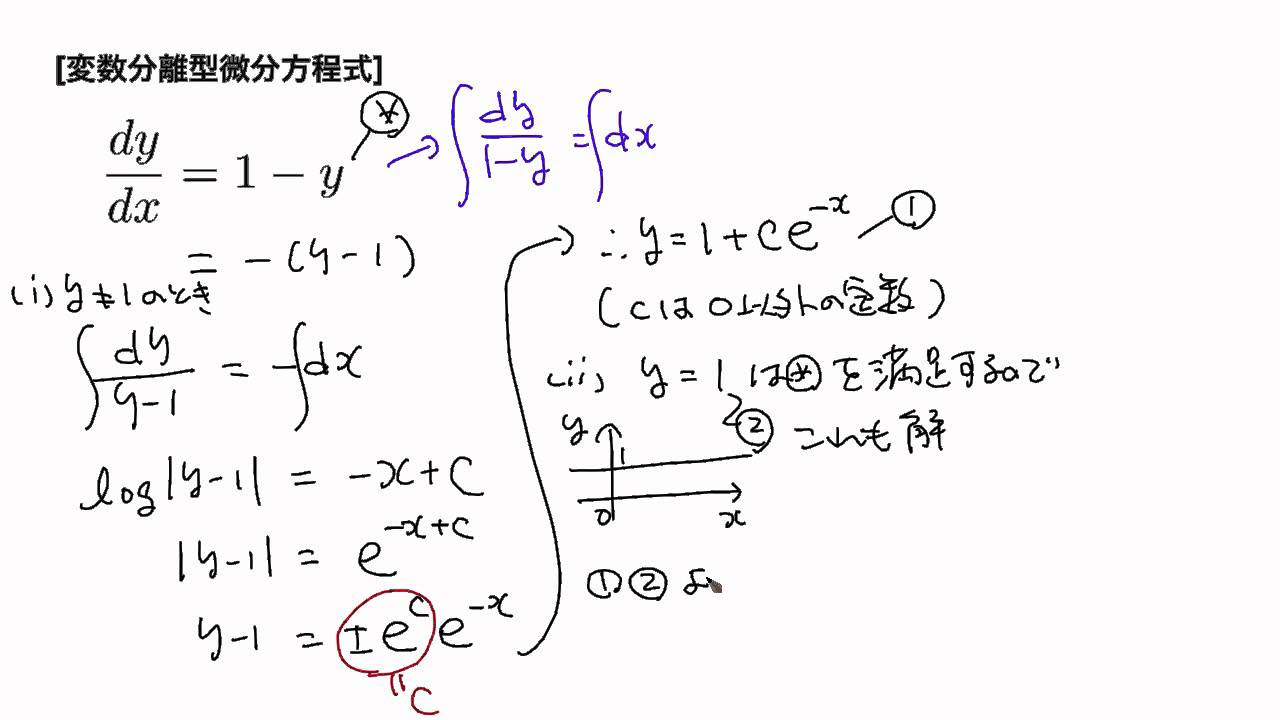 [変数分離型微分方程式]
dy/dx = 1 − y ※ → ∫ dy/(1−y) = ∫dx
= −(y−1)
(i) y≠1のとき
∫ dy/(y−1) = −∫dx
log|y−1| = −x+C
|y−1| = e^{−x+C}
y−1 = ±e^C e^{−x}
〃C
∴ y = 1 + Ce^{−x} ①
(Cは0以外の定数)
(ii) y = 1 は※を満足するので
② これも解
y
1
0 x
①②よ